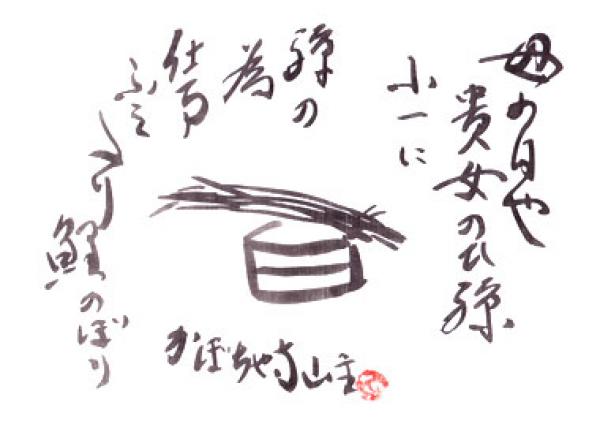 母の日や
貴女のひ孫
小一に
孫の
為
仕事
ふえたり
鯉のぼり
かぼちゃ寺山主